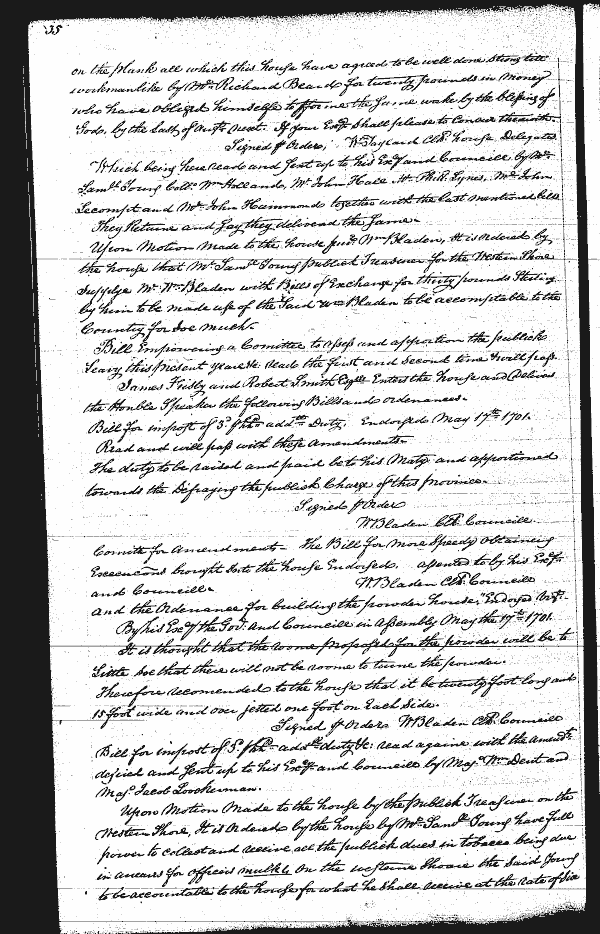 35
on the plank all which this house have agreed to be well done strong tite
workmanlike by Mr. Richard Beard for twenty pounds in money
who have obliged himselfe to pforme the same wake by the blessing of
Gods, by the last of next. If your Excy. Shall please to Concur therewith.
Signed p Order, W Taylard Clk. house Delegates
Which being here read and sent up to his Excy and Councill by Mr.
Saml. Young Coll. Wm Holland, Mr. John Hall Mr. Phill. Lynes, Mr. John
Lecompt and Mr. John Hammond together with the last mentioned bill
They Returne and say they deliverd the Same.
Upon Motion Made to the house Wm Bladen, It is ordered by
the house that Mr. Saml. Young publick Treasurer for the Western Shore
Supplye Mr. Wm. Bladen with Bills of Exchange for thirty pounds Sterling
by him to be made use of the Said Wm Bladen to be accomptable to the
Country for soe much.
Bill Empowering a Comittee to assess and apportion the publick
Leavy this present year &c. read the first and second time & will pass.
James Frisby and Robert Smith Esqrs. Enters the house and Delivers
the Honble Speaker the following Bills and ordenances.
Bill for impost of 3d. p hhd. addll. Duty. Endorsed May 17th. 1701.
Read and will pass with these Amendments.
The duty to be raised and paid be to his Maty and apportioned
towards the Defraying the publick Charge of this Province.
Signed p Order
W Bladen Clk. Councill.
Comitte for Amendments. The Bill for More Speedy obtaining
Execucons brought into the house Endorsed. assented to by his Excy.
and Councill.
W Bladen Clk Councill
and the Ordenance for building the powder house, Endorsed Vizt.
By his Excy the Govr. and Councill in Assembly May the 17th. 1701.
It is thought that the roome proposed for the powder will be to
Little soe that there will not be roome to turne the powder.
Therefore recomended to the house that it be twenty foot long and
15 foot wide and over jetted one foot on Each Side.
Signed p Order W Bladen Clk. Councill
Bill for impost of 3d. p hhd. addll duty &c. read againe with the amendts.
desired and sent up to his Excy. and Councill by Maj. Wm. Dent and
Maj. Jacob Loockerman.
Upon Motion Made to the house by the publick Treasurer on the
Western Shore, It is Ordered by the house by Mr. Saml. Young have full
power to collect and receive all the publick dues in tobacco being due
in arrears for officers mulkts on the westerne Shoare the Said Young
to be accountable to the house for what he Shall receive at the rate of Six